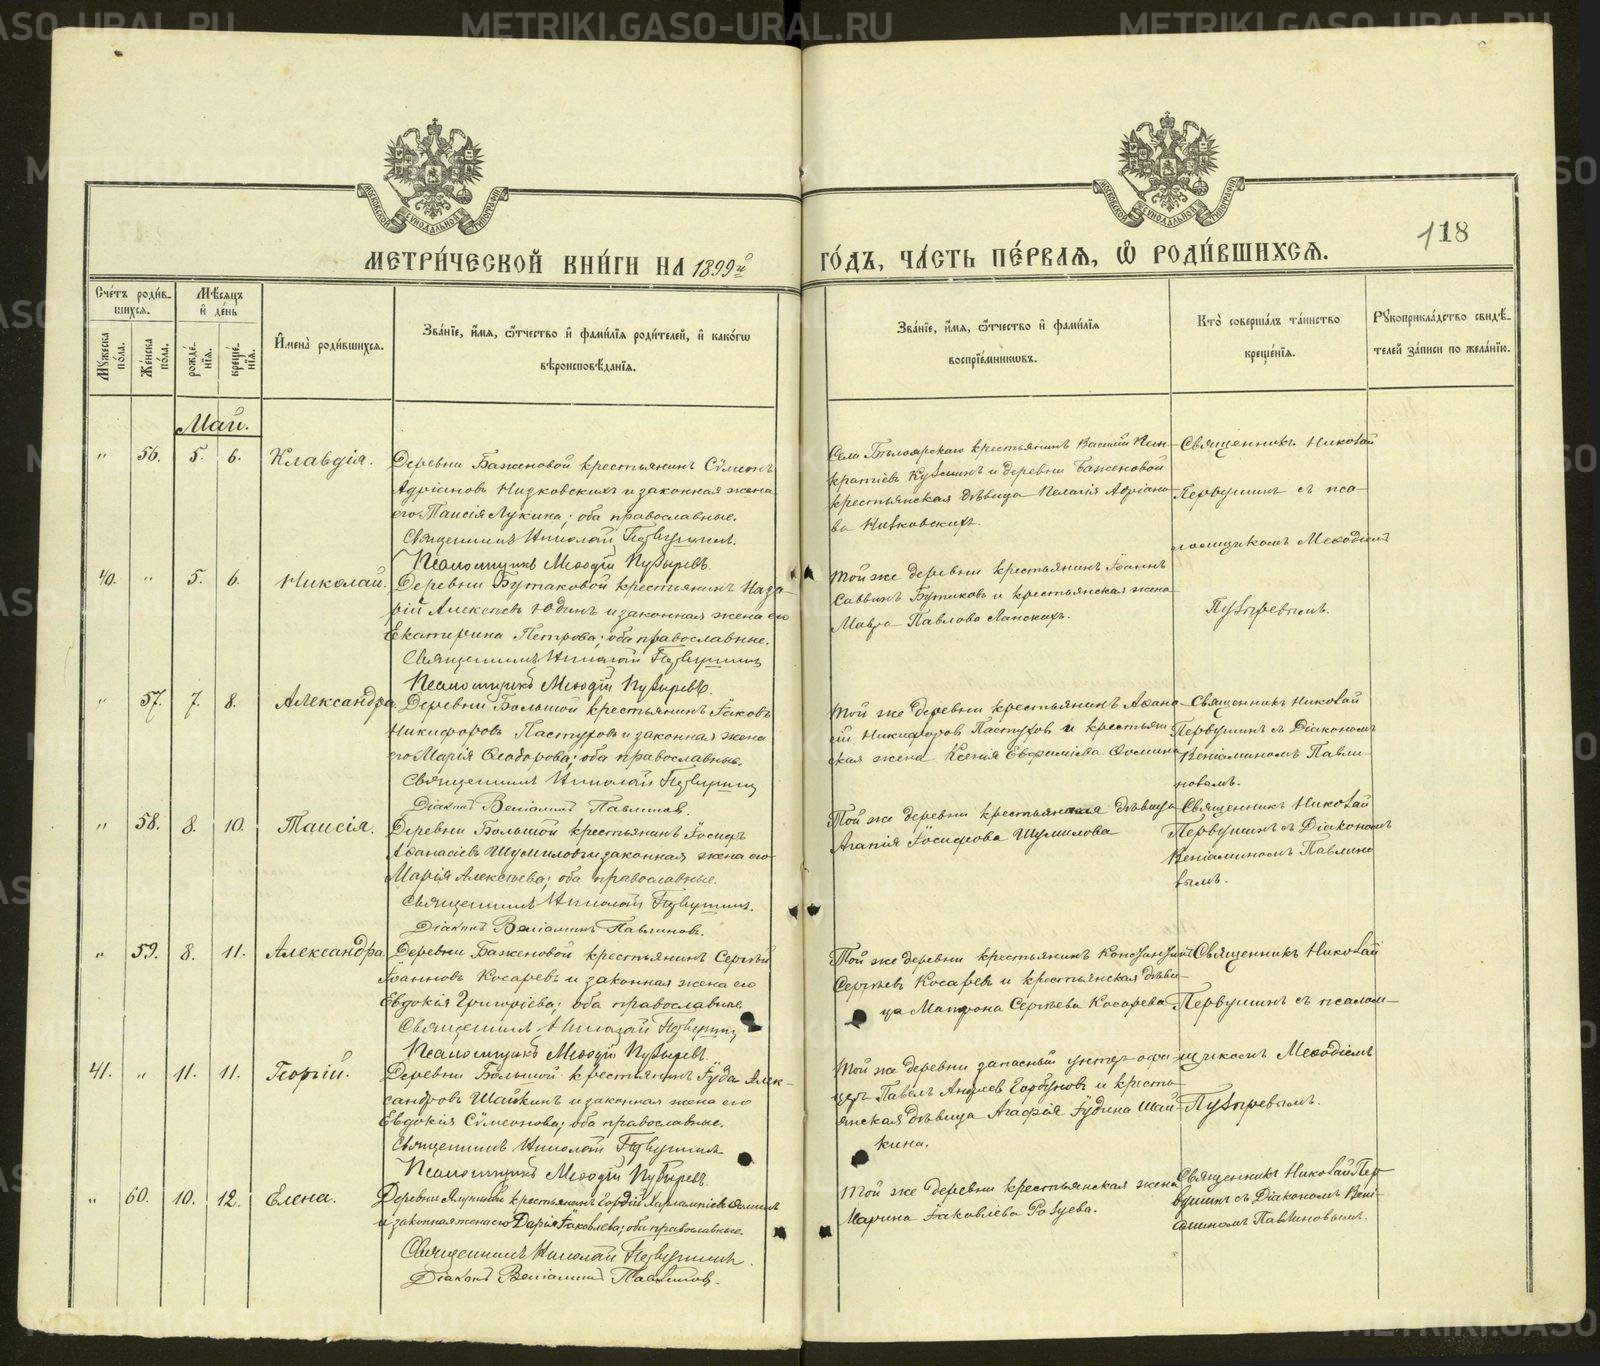 METRIKI.GASO-URAL.RU
МОСКОВСКОЙ СѴНОДАЛЬНОЙ ТИПОГРАФІИ
118
МЕТРИ́ЧЕСКОЙ КНИ́ГИ НА 1899й ГО́ДЪ, ЧА́СТЬ ПЕ́РВАЯ, Ѡ҆ РОДИ́ВШИХСЯ.
Сче́тъ роди́в-
шихся.
Мꙋжеска по́ла.
Же́нска по́ла.
Мѣ́сяцъ
и҆ де́нь
рожде́-
нїя.
креще́-
нїя.
И҆мена̀ роди́вшихся.
Зва́нїе, и҆́мя, ѻ҆́тчество и҆ фами́лїя роди́телей, и҆ како́гѡ
вѣроисповѣ́данїя.
Зва́нїе, и҆́мя, ѻ҆́тчество и҆ фами́лїя
воспрїе́мникѡвъ.
Кто̀ соверша́лъ та́инство
креще́нїя.
Рꙋкоприкла́дство свидѣ́-
телей за́писи по жела́нїю.
Май.
" 56. 5. 6. Клавдія.
Деревни Баженовой крестьянинъ Сѵмеонъ
Адріановъ Низковскихъ и законная жена
его Таисія Лукина; оба православные.
Священникъ Николай Первушинъ.
Псаломщикъ Меѳодій Пузыревъ.
Села Бѣлоярскаго крестьянинъ Василій
и деревни Баженовой
крестьянская дѣвица Пелагія Адріано-
ва Низковскихъ.
Священникъ Николай
Первушинъ съ пса-
ломщикомъ Меѳодіемъ
Пузыревымъ.
40. " 5. 6. Николай.
Деревни Бутаковой крестьянинъ Наза-
рій Алексѣевъ Юдинъ и законная жена его
Екатерина Петрова; оба православные.
Священникъ Николай Первушинъ
Псаломщикъ Меѳодій Пузыревъ.
Той же деревни крестьянинъ Іоаннъ
Саввинъ Бутаковъ и крестьянская жена
Мавра Павлова Ланскихъ.
" 57. 7. 8. Александра.
Деревни Большой крестьянинъ Іаковъ
Никифоровъ Пастуховъ и законная жена
его Марія Ѳеодорова; оба православные.
Священникъ Николай Первушинъ
Діаконъ Веніаминъ Павлиновъ.
Той же деревни крестьянинъ Аѳана-
сій Никифоровъ Пастуховъ и крестьян-
ская жена Ксенія Евфиміева Ѳомина
Священникъ Николай
Первушинъ съ Діакономъ
Веніаминомъ Павли-
новымъ.
" 58. 8. 10. Таисія.
Деревни Большой крестьянинъ Іосифъ
Аѳанасіевъ Шумиловъ и законная жена его
Марія Алексѣева; оба православные.
Священникъ Николай Первушинъ.
Діаконъ Веніаминъ Павлиновъ.
Той же деревни крестьянская дѣвица
Агапія Іосифова Шумилова
Священникъ Николай
Первушинъ съ Діакономъ
Веніаминомъ Павлино
вымъ.
" 59. 8. 11. Александра.
Деревни Баженовой крестьянинъ Сергѣй
Іоанновъ Косаревъ и законная жена его
Евдокія Григоріева; оба православные.
Священникъ Николай Первушинъ
Псаломщикъ Меѳодій Пузыревъ.
Той же деревни крестьянинъ Константинъ
Сергѣевъ Косаревъ и крестьянская дѣви-
ца Матрона Сергѣева Косарева
Священникъ Николай
Первушинъ съ псалом-
щикомъ Меѳодіемъ
Пузыревымъ.
41. " 11. 11. Георгій.
Деревни Большой крестьянинъ Іуда Алек-
сандровъ Шайкинъ и законная жена его
Евдокія Сѵмеонова; оба православные.
Священникъ Николай Первушинъ
Псаломщикъ Меѳодій Пузыревъ.
Той же деревни запасный унтеръ-офи-
церъ Павелъ Андреевъ Горбуновъ и кресть-
янская дѣвица Агафія Іудина Шай-
кина.
" 60. 10. 12. Елена.
Деревни крестьянинъ Гордій Харлампіевъ
и законная жена его Дарія Іаковлева; оба православные.
Священникъ Николай Первушинъ.
Діаконъ Веніаминъ Павлиновъ.
Той же деревни крестьянская жена
Марина Іаковлева
Священникъ Николай Пер-
вушинъ съ Діакономъ Вені-
аминомъ Павлиновымъ.